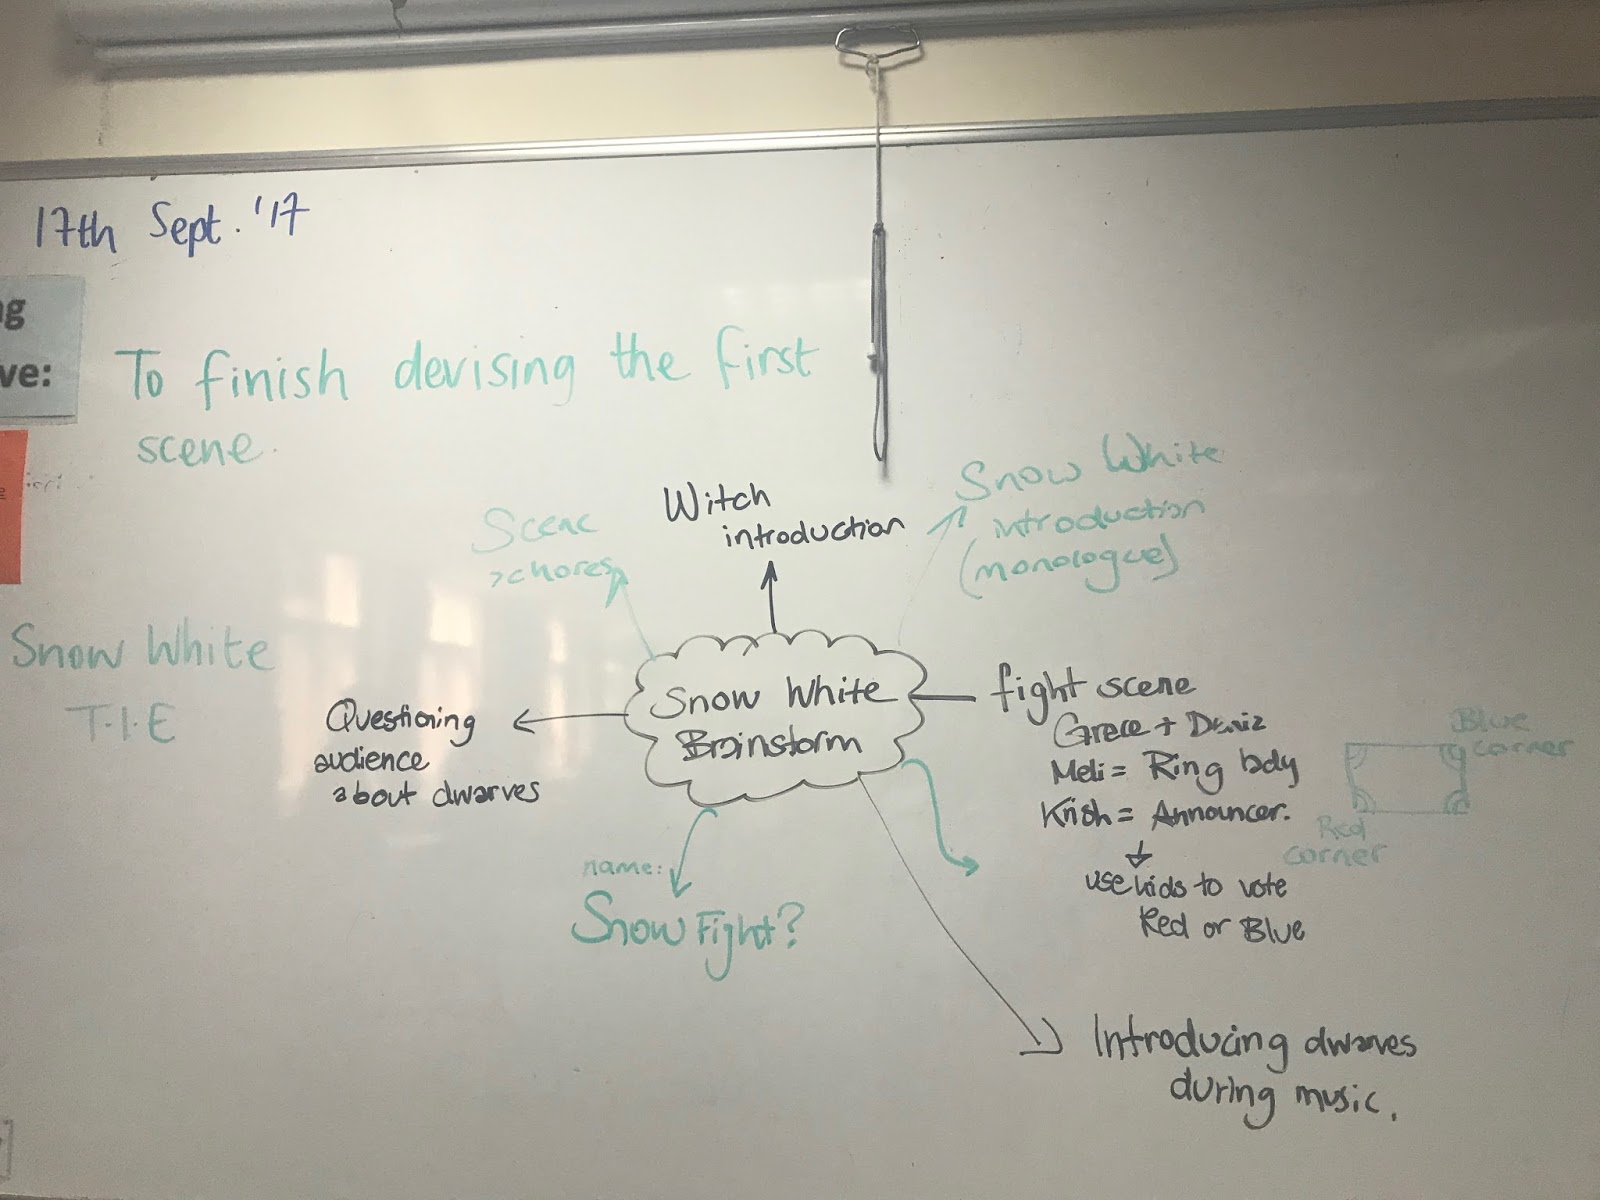 17th Sept. '17
ve:
To finish devising the first
scene.
Scene
>chores
Witch
introduction
Snow White
introduction
(monologue)
Snow White
T.I.E
Snow White
Brainstorm
Questioning
audience
about dwarves
name:
Snow Fight?
fight scene
Grace + Deniz
Meli = Ring body
Krish = Announcer.
use kids to vote
Red or Blue
Blue
corner
Red
corner
Introducing dwarves
during music.